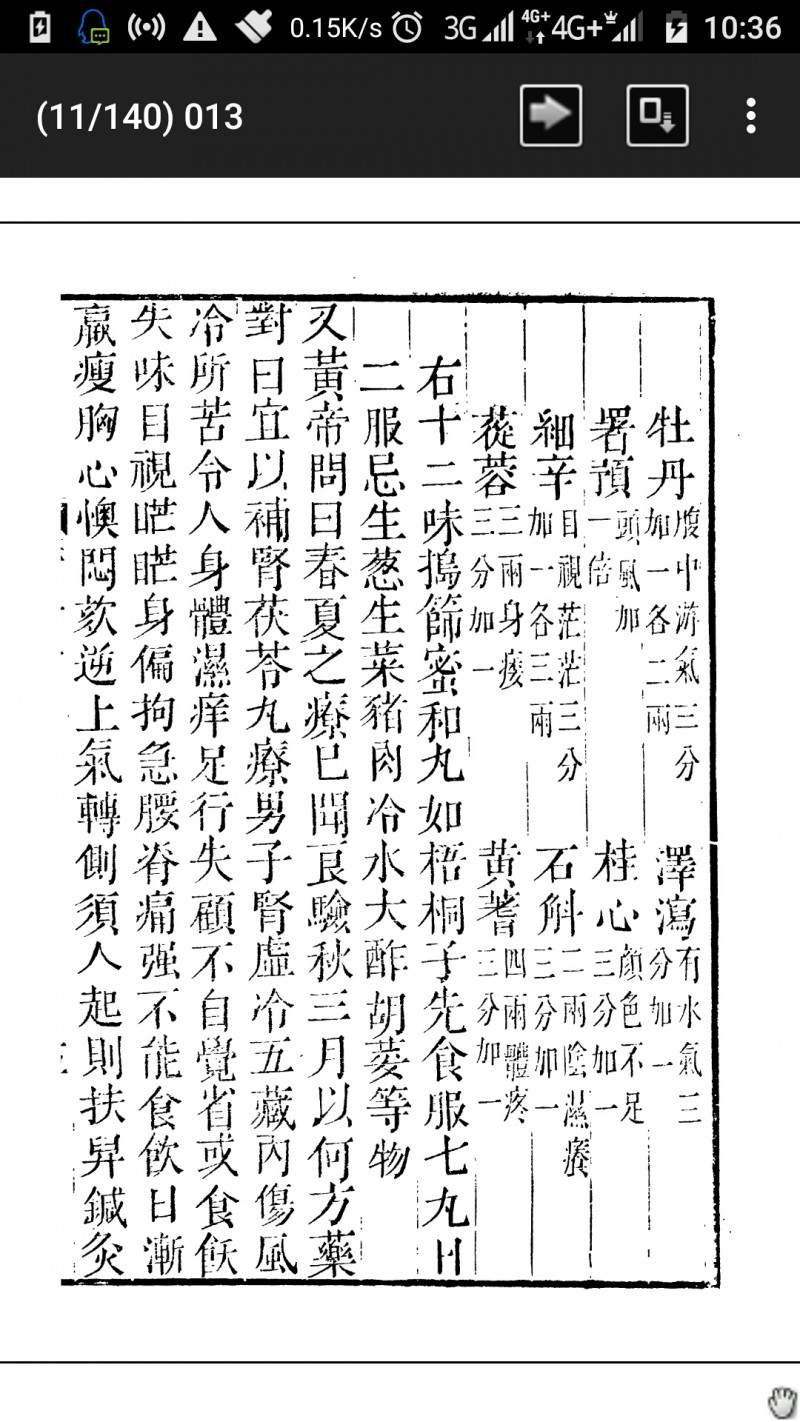 0.15K/s 3G 4G+ 4G+ 10:36
(11/140) 013
牡丹腹中游氣三分加一各二兩 澤瀉有水氣三分加一
署蕷頭風加一倍 桂心顏色不足三分加一
細辛目視茫茫三分加一各三兩 石斛二兩陰濕癢三分加一
蓯蓉三兩身痿三分加一 黃蓍四兩體疼三分加一
右十二味搗篩蜜和丸如梧桐子先食服七丸日
二服忌生葱生菜豬肉冷水大酢胡荽等物
又黃帝問曰春夏之療已聞良驗秋三月以何方藥
對曰宜以補腎茯苓丸療男子腎虛冷五藏內傷風
冷所苦令人身體濕痒足行失顧不自覺省或食飲
失味目視𥆨𥆨身偏拘急腰脊痛强不能食飲日漸
羸瘦胸心懊悶欬逆上氣轉側須人起則扶舁鍼灸